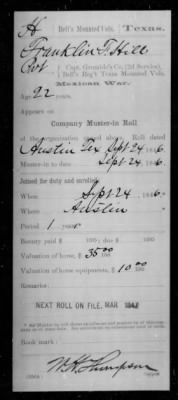 H | Bell's Mounted Vols, Texas.
Franklin T. Hill
Pvt, Capt. Grumble's Co. (2d Service),
Bell's Reg't Texas Mounted Vols.
Mexican War.
Age 22 years.
Appears on
Company Muster-in Roll
of the organization named above. Roll dated
Austin Tex Sept 24, 1846.
Muster-in to date Sept 24, 1846.
Joined for duty and enrolled:
When Sept 24, 1846.
Where Austin
Period 1 year
Bounty paid $ 100; due $ 100
Valuation of horse, $ 35 00/100
Valuation of horse equipments, $ 10 00/100
Remarks:
NEXT ROLL ON FILE, MAR 184
Book mark:
W. H. Thompson
Copyist.